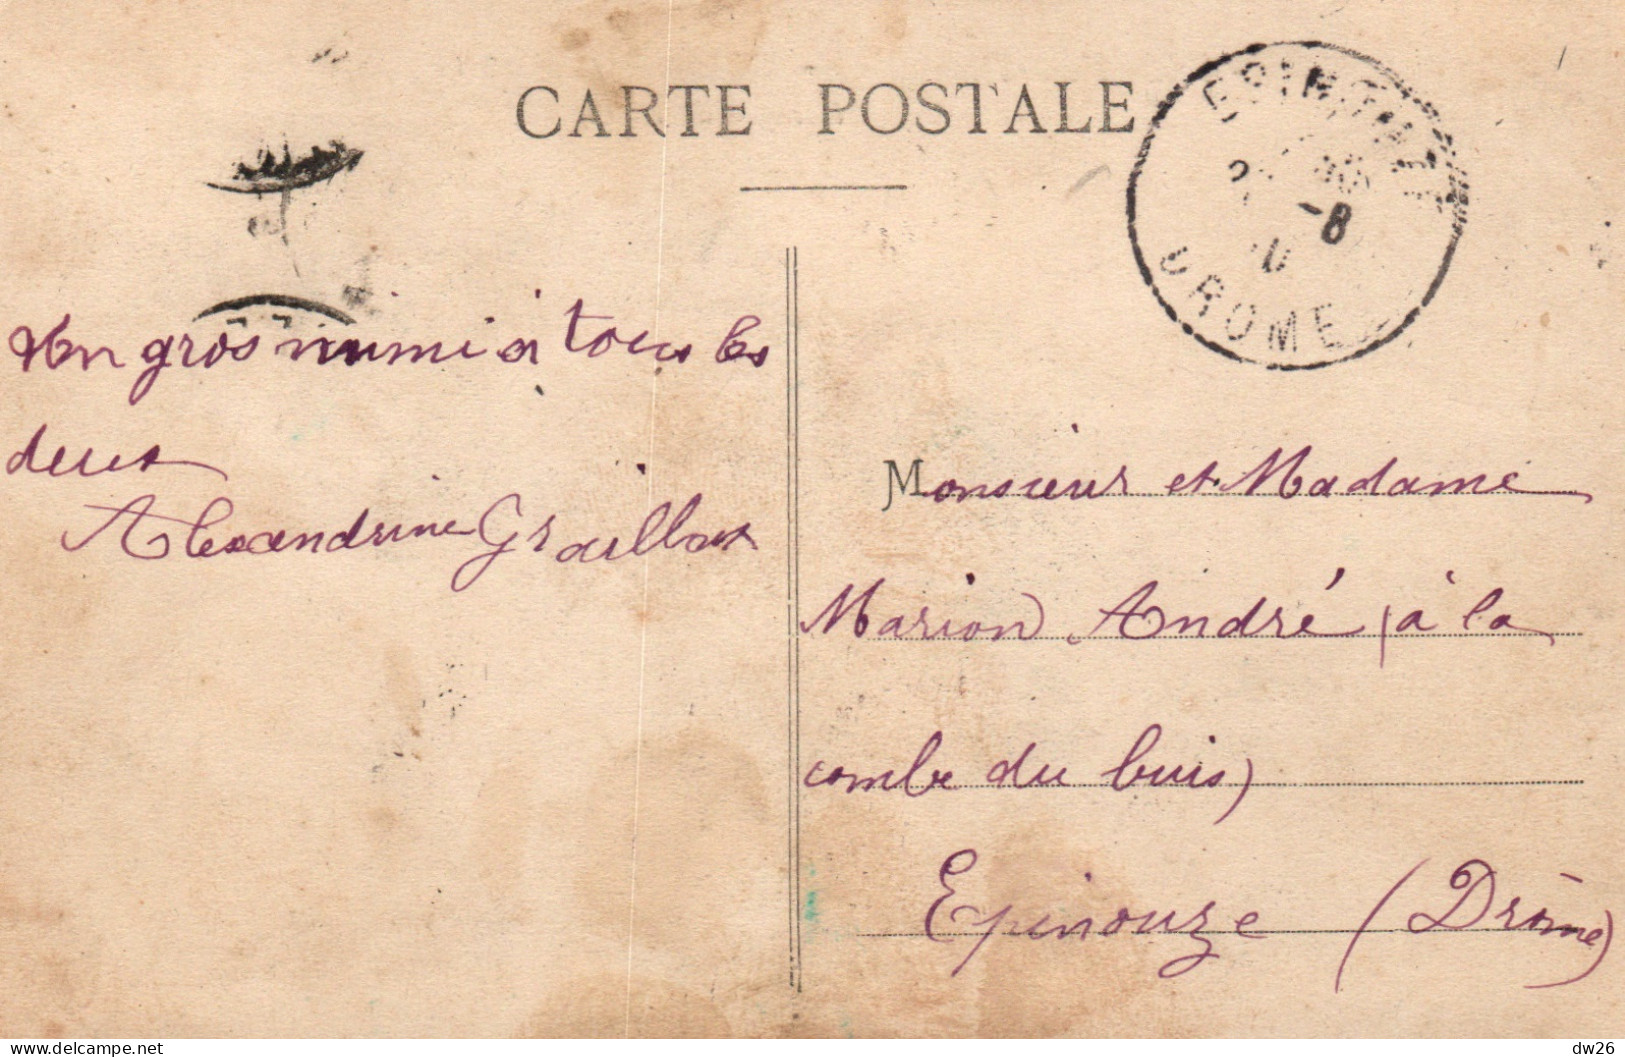 CARTE POSTALE
-8
DROME
Un gros mimi à tous les
deux
Alexandrine Graillat
Monsieur et Madame
Marion André (à la
combe du buis)
Epinouze (Drôme)
delcampe.net
dw26